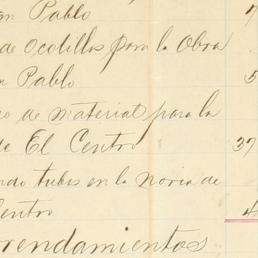 n Pablo 7
de Ocotillos para la Obra
n Pablo 5
de material para la
de El Centro 37
ndo tubos en la noria de
Centro 4
rrendamientos